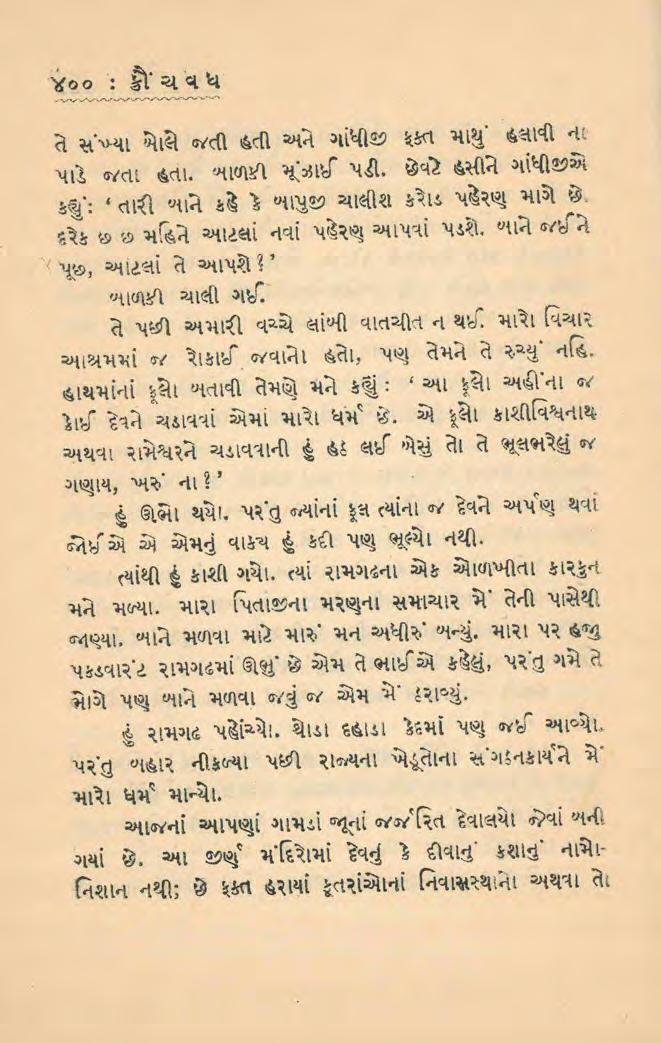 ૪૦૦ : ક્રૌંચવધ
તે સંખ્યા બોલે જતી હતી અને ગાંધીજી ફક્ત માથું હલાવી ના
પાડે જતા હતા. બાળકી મૂંઝાઈ પડી. છેવટે હસીને ગાંધીજીએ
કહ્યું: ‘તારી બાને કહે કે બાપુજી ચાલીશ કરોડ પહેરણ માગે છે.
દરેક છ છ મહિને આટલાં નવાં પહેરણ આપવાં પડશે. બાને જઈને
પૂછ, આટલાં તે આપશે?’
બાળકી ચાલી ગઈ.
તે પછી અમારી વચ્ચે લાંબી વાતચીત ન થઈ. મારો વિચાર
આશ્રમમાં જ રોકાઈ જવાનો હતો, પણ તેમને તે રુચ્યું નહિ.
હાથમાંનાં ફૂલો બતાવી તેમણે મને કહ્યું : ‘આ ફૂલો અહીંના જ
કોઈ દેવને ચડાવવાં એમાં મારો ધર્મ છે. એ ફૂલો કાશીવિશ્વનાથ
અથવા રામેશ્વરને ચડાવવાની હું હઠ લઈ બેસું તો તે ભૂલભરેલું જ
ગણાય, ખરું ના?’
હું ઊભો થયો. પરંતુ જ્યાંનાં ફૂલ ત્યાંના જ દેવને અર્પણ થવાં
જોઈએ એ એમનું વાક્ય હું કદી પણ ભૂલ્યો નથી.
ત્યાંથી હું કાશી ગયો. ત્યાં રામગઢના એક ઓળખીતા કારકુન
મને મળ્યા. મારા પિતાજીના મરણના સમાચાર મેં તેની પાસેથી
જાણ્યા. બાને મળવા માટે મારું મન અધીરું બન્યું. મારા પર હજુ
પકડવારંટ રામગઢમાં ઊભું છે એમ તે ભાઈએ કહેલું, પરંતુ ગમે તે
ભોગે પણ બાને મળવા જવું જ એમ મેં ઠરાવ્યું.
હું રામગઢ પહોંચ્યો. થોડા દહાડા કેદમાં પણ જઈ આવ્યો.
પરંતુ બહાર નીકળ્યા પછી રાજ્યના ખેડૂતોના સંગઠનકાર્યને મેં
મારો ધર્મ માન્યો.
આજનાં આપણાં ગામડાં જૂનાં જર્જરિત દેવાલયો જેવાં બની
ગયાં છે. આ જીર્ણ મંદિરોમાં દેવનું કે દીવાનું કશાનું નામો-
નિશાન નથી; છે ફક્ત હરાયાં કૂતરાંઓનાં નિવાસસ્થાનો અથવા તો